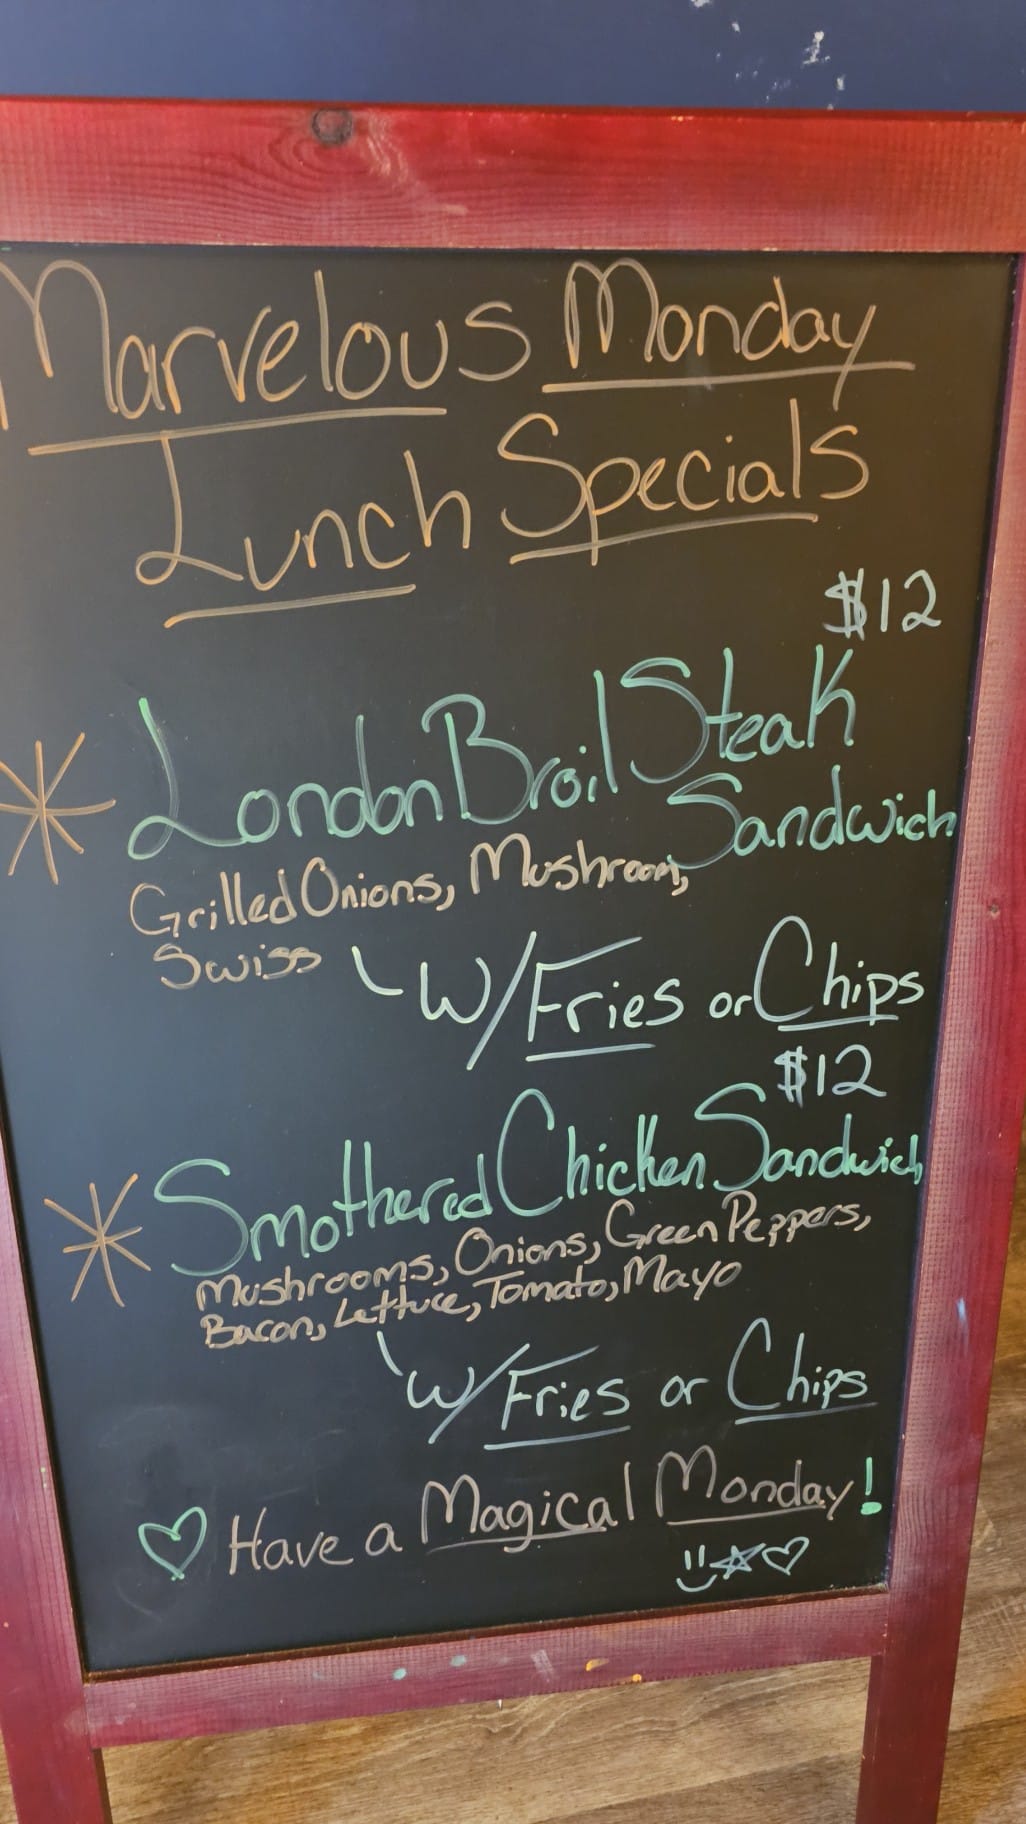 Marvelous Monday
Lunch Specials
$12
London Broil Steak
Sandwich
Grilled Onions, Mushroom,
Swiss
W/Fries or Chips
$12
Smothered Chicken Sandwich
Mushrooms, Onions, Green Peppers,
Bacon, Lettuce, Tomato, Mayo
W/Fries or Chips
Have a Magical Monday!